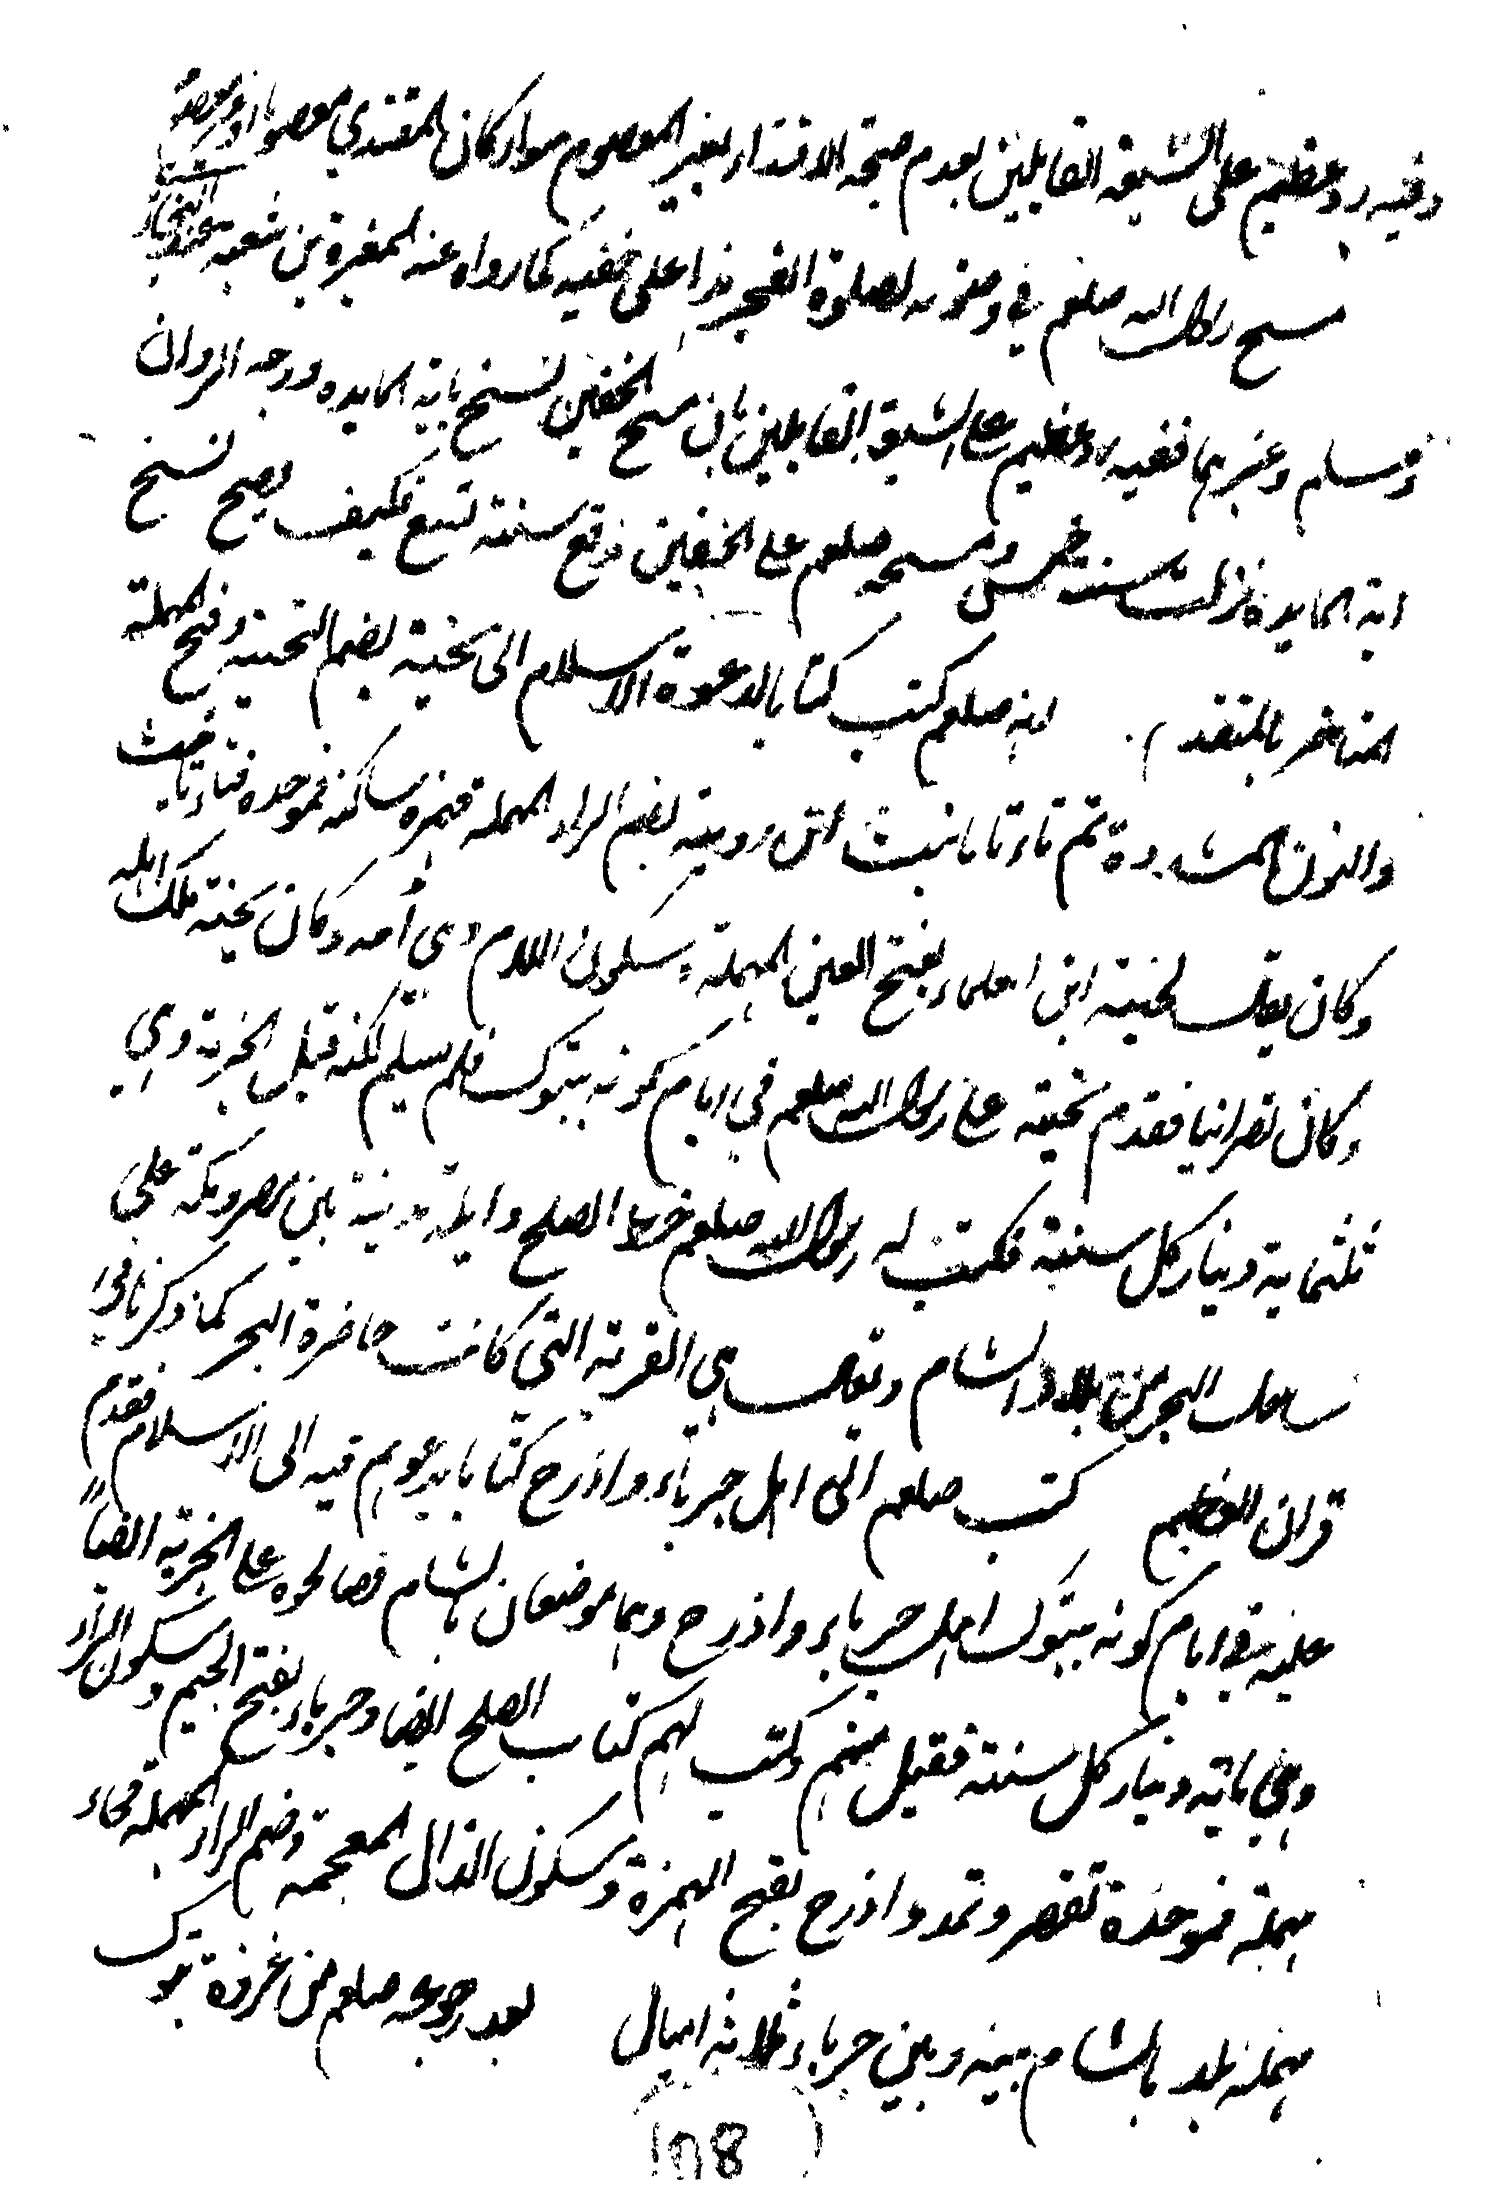 وفيه رد عظيم على الشيعة القايلين بعدم صحة الاقتداء بغير المعصوم سواء كان المقتدي معصوما او غير معصوم
مسح رسول الله صلعم في وضوئه لصلوة الفجر هذا على خفيه كما رواه عنه المغيرة بن شعبة عند الشيخين البخاري
ومسلم وغيرهما ففيه رد عظيم على الشيعة القايلين بان مسح الخفين نسخ باية المايدة ووجه الرد ان
اية المايدة نزلت سنة خمس ومسحه صلعم على الخفين وقع سنة تسع فكيف يصح نسخ
المتاخر بالمتقدم . انه صلعم كتب كتابا لدعوة الاسلام الى يحنة بضم التحتية وفتح المهملة
والنون المشددة ثم تاء تانيث ابن روبة بضم الراء المهملة فهمزة ساكنة فموحدة فتاء تانيث
وكان يقال ليحنة ابن العلماء بفتح العين المهملة وسكون اللام وهي أمه وكان يحنة ملك ايلة
وكان نصرانيا فقدم يحنة على رسول الله صلعم في ايام كونه بتبوك فلم يسلم لكنه قبل الجزية وهي
ثلثماية دينار كل سنة فكتب له رسول الله صلعم خط الصلح وايلة مدينة بين مصر ومكة على
ساحل البحر من بلاد الشام ويقال هي القرية التي كانت حاضرة البحر كما ذكرنا في
قران العظيم كتب صلعم الى اهل جرباء واذرح كتابا يدعوهم فيه الى الاسلام فقدم
عليه في ايام كونه بتبوك اهل جرباء واذرح وهما موضعان بالشام فصالحوه على الجزية ايضا
وهي ماية دينار كل سنة فقبل منهم وكتب لهم كتاب الصلح ايضا وجرباء بفتح الجيم وسكون الراء
مهملة فموحدة تقصر وتمد واذرح بفتح الهمزة وسكون الذال المعجمة وضم الراء المهملة فحاء
مهملة بلد بالشام بينه وبين جرباء ثلاثة اميال بعد رجوعه صلعم من غزوة تبوك